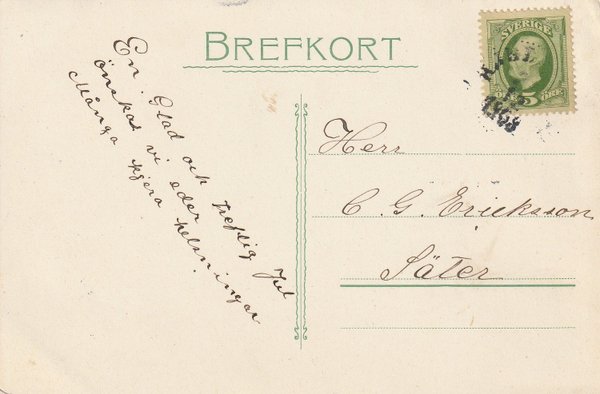 BREFKORT
SVERIGE
5 ÖRE
1903
En Glad och treflig Jul
önskas vi eder
Många kjera helsningar
Herr
C. G. Ericksson
Säter